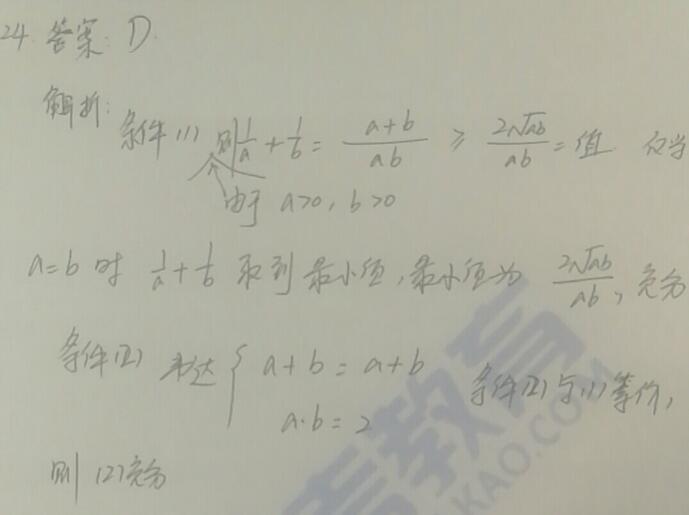 24. 答案: D.
解析:
条件(1) 则 1/a + 1/b = (a+b)/(ab) ≥ 2√ab/(ab) = 值 仅当
由于 a>0, b>0
a=b 时 1/a + 1/b 取到最小值,最小值为 2√ab/(ab), 充分
条件(2) 韦达 { a+b=a+b
a·b=2
条件(2)与(1)等价,
则(2)充分
KAO.COM